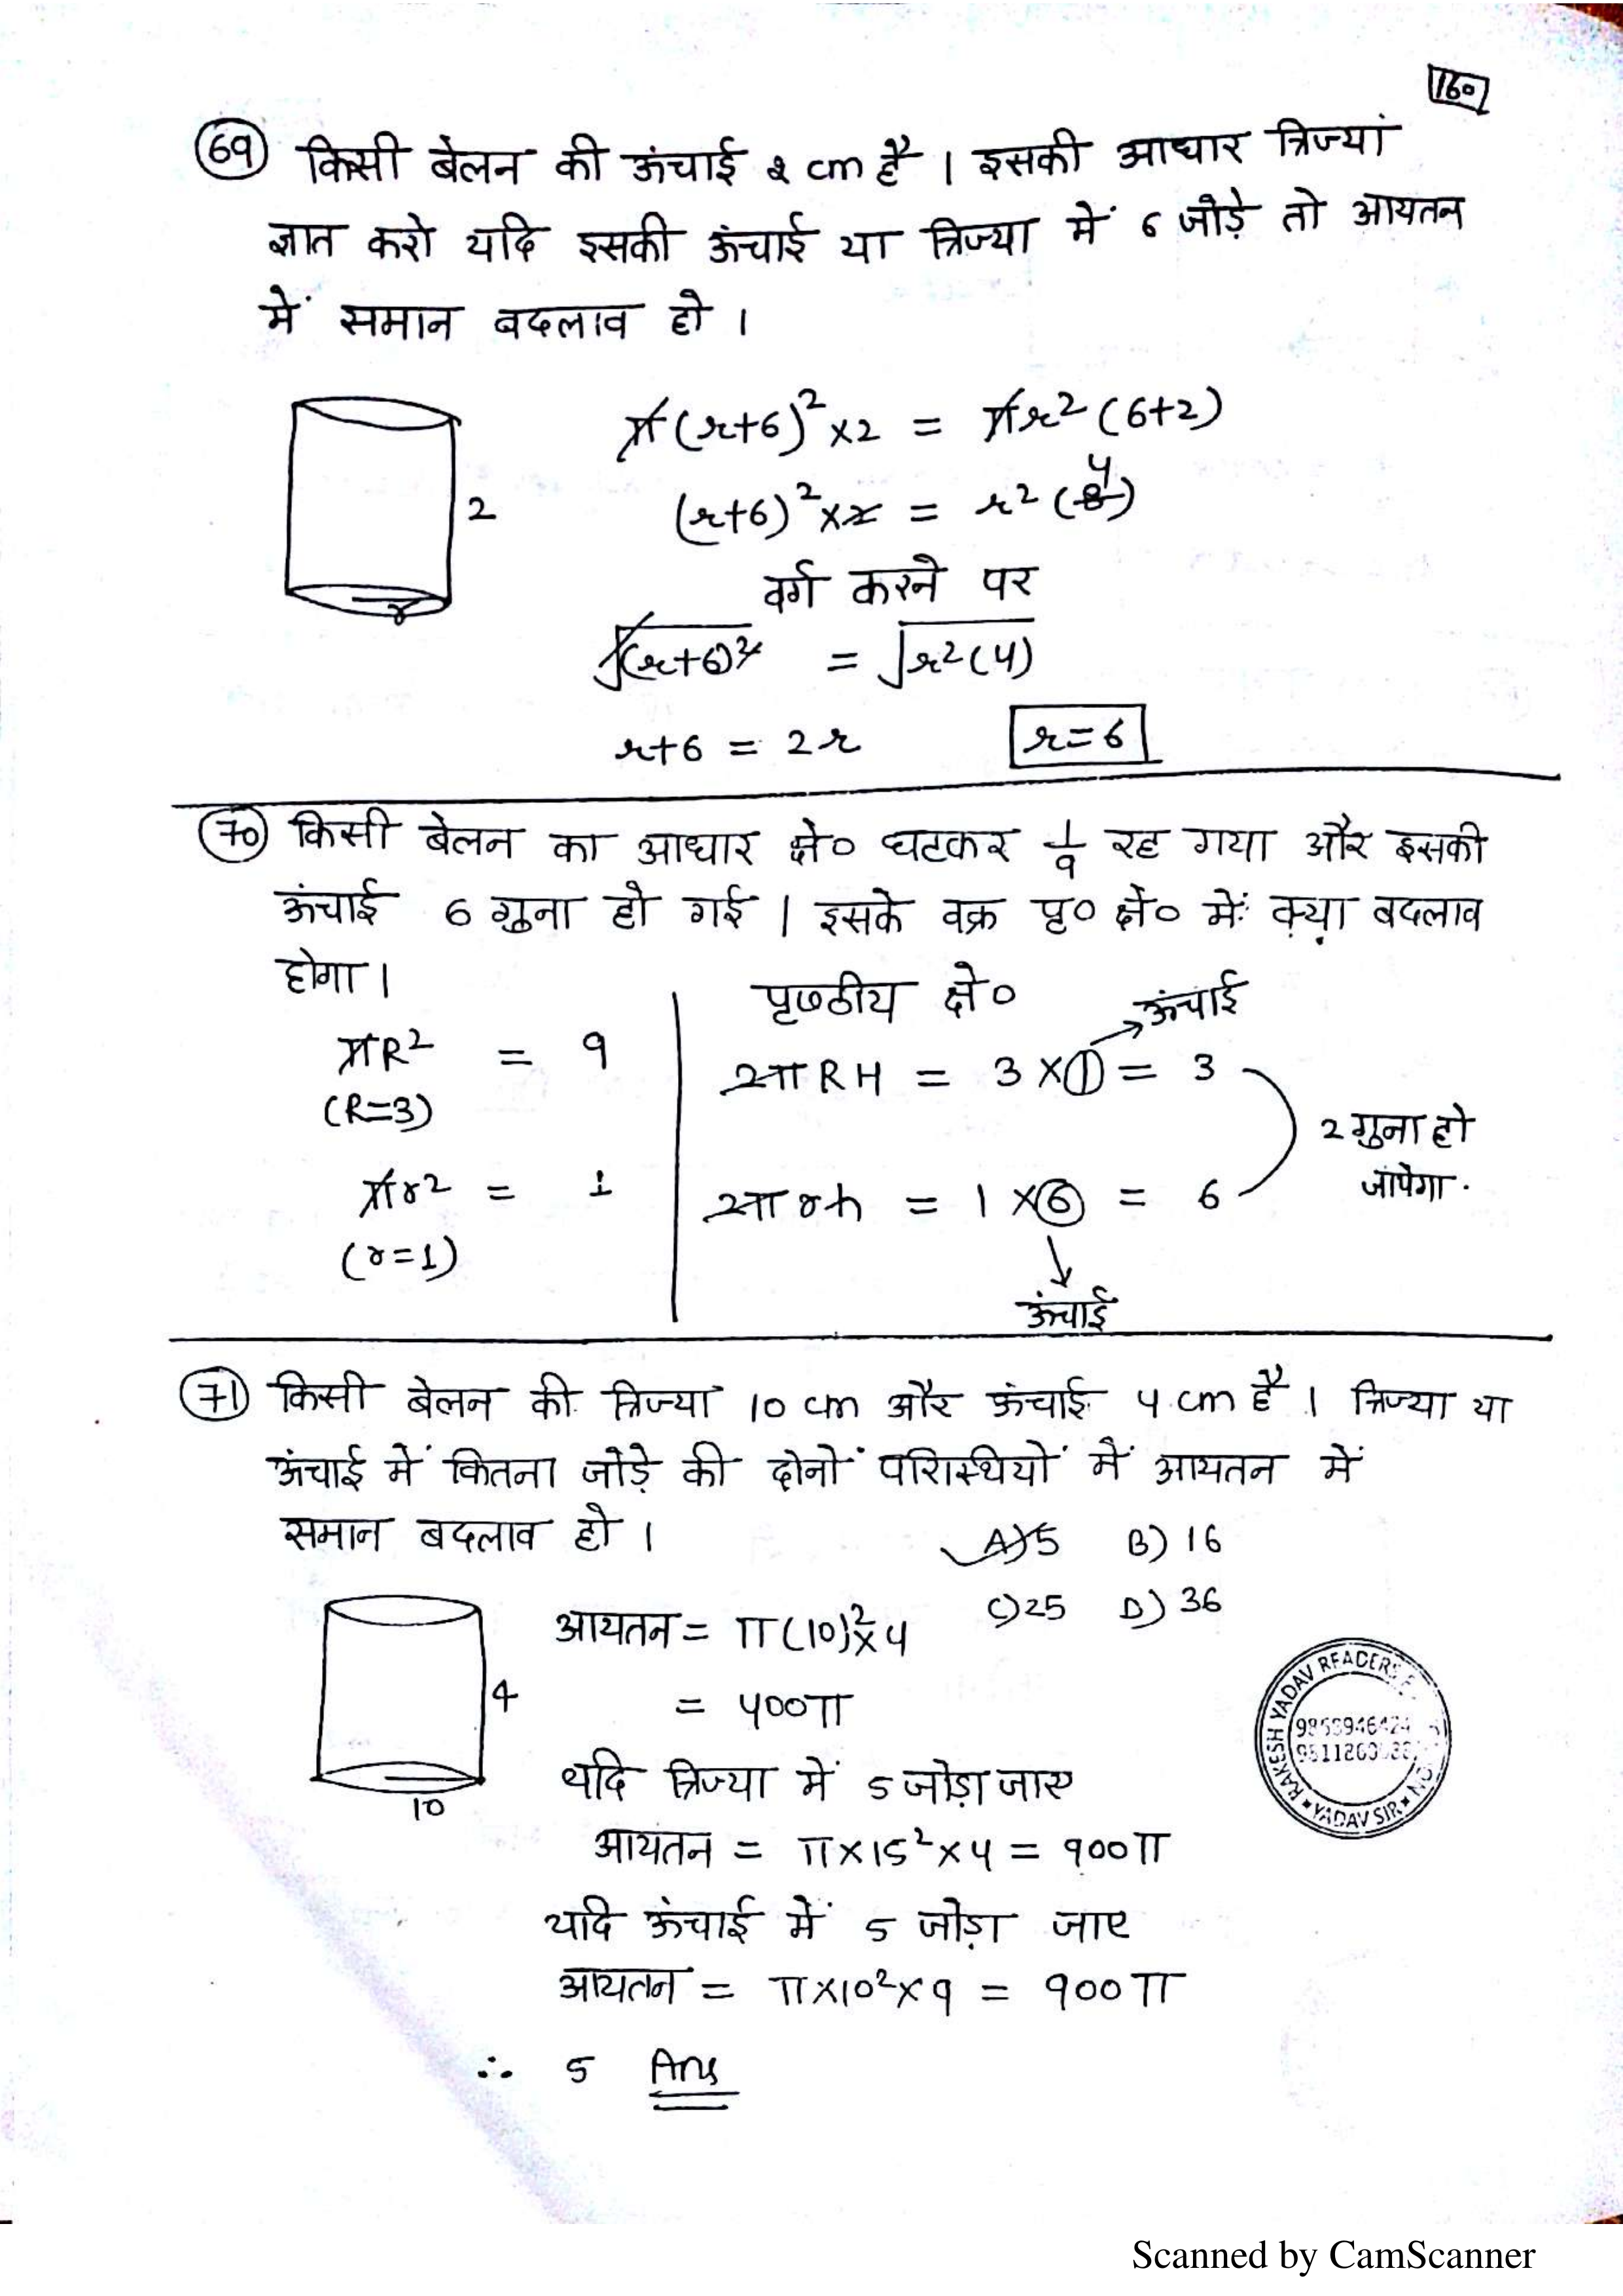 160
69 किसी बेलन की ऊंचाई 2 cm है । इसकी आधार त्रिज्यां
ज्ञात करो यदि इसकी ऊंचाई या त्रिज्या में 6 जोड़े तो आयतन
में समान बदलाव हो ।
π(r+6)²×2 = πr²(6+2)
(r+6)²×2 = r²(8) 4
2
वर्ग करने पर
r
√(r+6)² = √r²(4)
r+6 = 2r r=6
70 किसी बेलन का आधार क्षे० घटकर 1/9 रह गया और इसकी
ऊंचाई 6 गुना हो गई । इसके वक्र पृ० क्षे० में क्या बदलाव
होगा ।
पृष्ठीय क्षे० ऊंचाई
πR² = 9
2πRH = 3×1 = 3
(R=3)
2 गुना हो
जायेगा.
πr² = 1
2πrh = 1×6 = 6
(r=1)
ऊंचाई
71 किसी बेलन की त्रिज्या 10 cm और ऊंचाई 4 cm है । त्रिज्या या
ऊंचाई में कितना जोड़े की दोनों परास्थियों में आयतन में
समान बदलाव हो ।
A) 5 B) 16
C) 25 D) 36
आयतन = π(10)²×4
4
= 400π
यदि त्रिज्या में 5 जोड़ा जाए
10
आयतन = π×15²×4 = 900π
यदि ऊंचाई में 5 जोड़ा जाए
आयतन = π×10²×9 = 900π
∴ 5 Ans
RAKESH YADAV READERS
YADAV SIR
Scanned by CamScanner